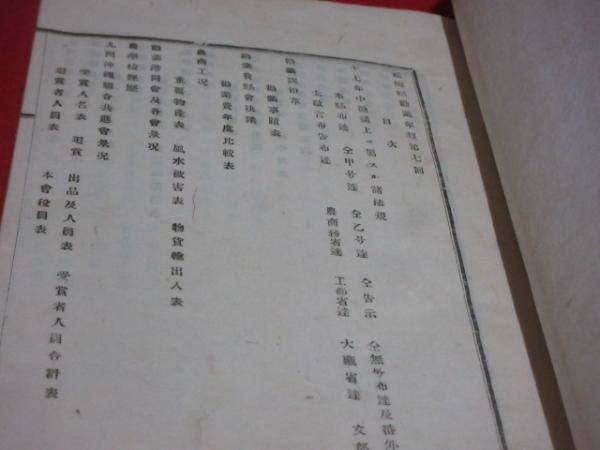 福岡縣勸業年報第七回
目次
十七年中勸業上ニ關スル諸法規
本縣布達 仝甲号達 仝乙号達 仝告示 仝無号布達及番外
太政官布告布達 農商務省達 工部省達 大藏省達 文部
勸業沿革
勸業事蹟表
勸業費縣會决議
勸業費年度比較表
農商工况
重要物産表 風水被害表 物貨輸出入表
勸業諮問會及各會景况
農學校經歴
九州沖縄聯合共進會景况
受賞人名表 追賞 出品及人員表 受賞者人員合計表
追賞者人員表 本會役員表